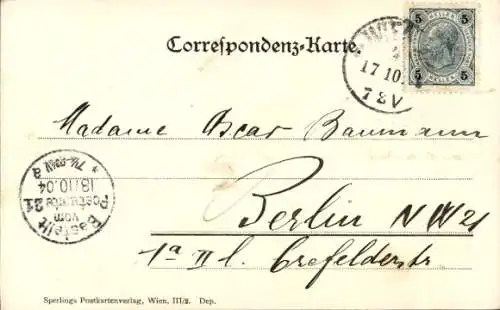 Correspondenz-Karte.
5 5
5 HELLER 5
WIEN
17 10.
7 8 V
Madame Oscar Baumann
Berlin NW 21
1a II l. Crefelderstr
Bestellt
vom
Postamte 21
18/10.04
* 7¼-8½V a
Sperlings Postkartenverlag, Wien, III/2. Dep.